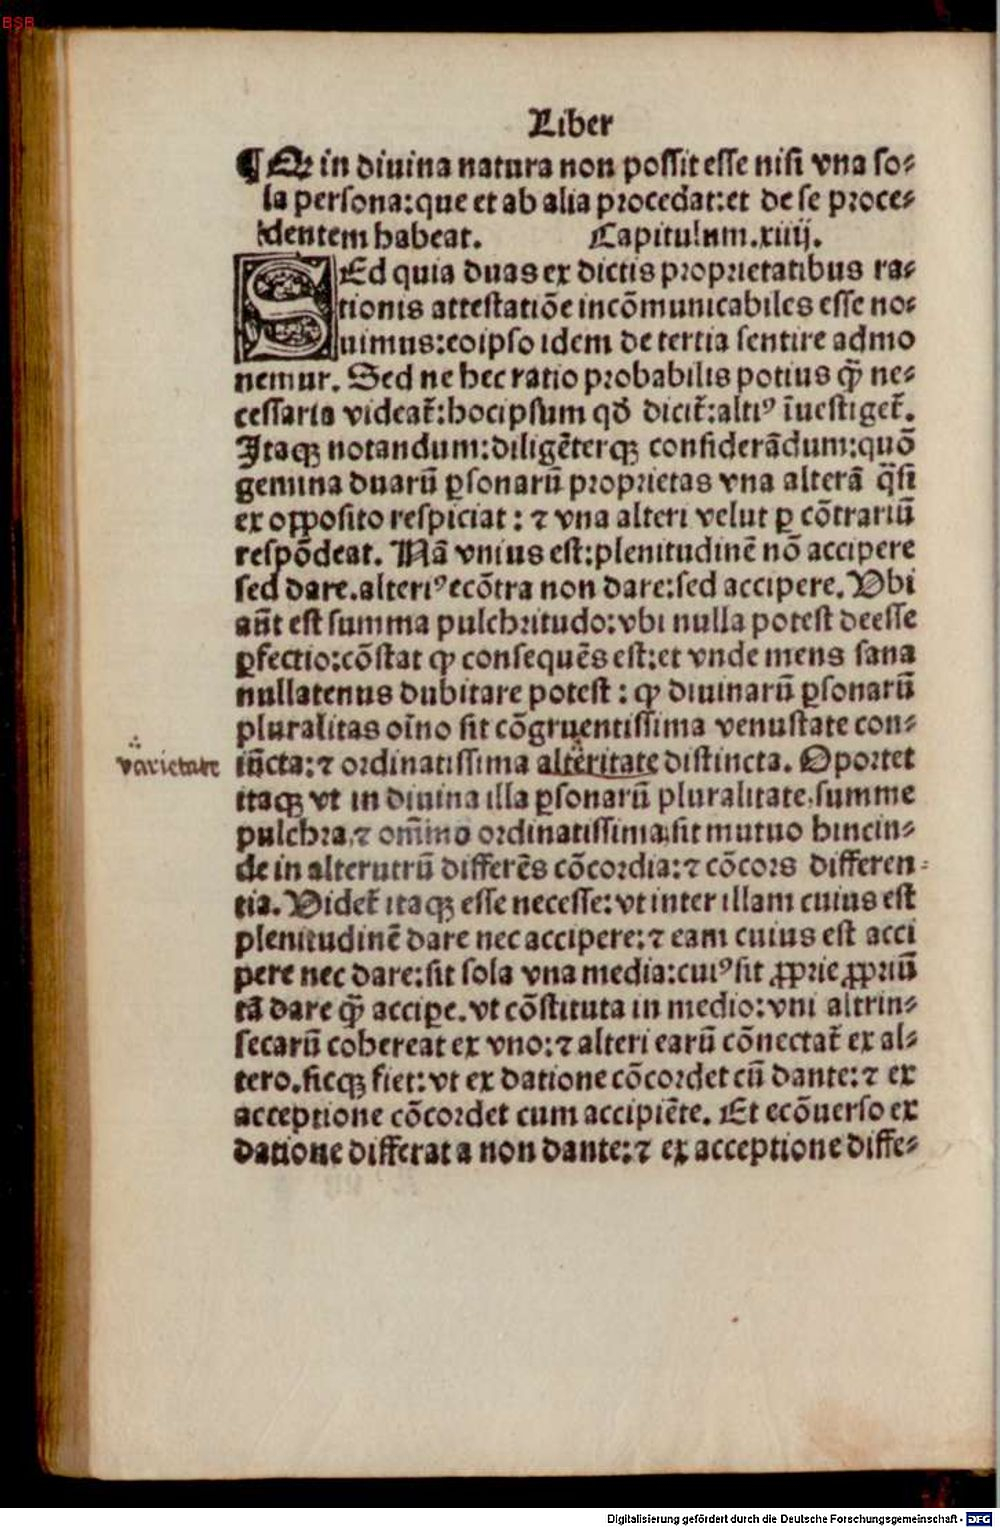 BSB
Liber
¶ Qꝙ in diuina natura non possit esse nisi vna so⸗
la persona:que et ab alia procedat:et de se proce⸗
dentem habeat. Capitulum.xiiij.
SEd quia duas ex dictis proprietatibus ra⸗
tionis attestatiõe incõmunicabiles esse no⸗
uimus:eoipso idem de tertia sentire admo
nemur. Sed ne hec ratio probabilis potius ꝙ̃ ne⸗
cessaria videat̃:hocipsum qđ dicit̃:altiꝰ ĩuestiget̃.
Itaqꝫ notandum:diligẽterqꝫ considerãdum:quõ
gemina duarũ ꝑsonarũ proprietas vna alterã q̃si
ex opposito respiciat : ⁊ vna alteri velut ꝑ cõtrariũ
respõdeat. Nã vnius est:plenitudinẽ nõ accipere
sed dare.alteriꝰ ecõtra non dare:sed accipere. Vbi
aũt est summa pulchritudo:vbi nulla potest deesse
ꝑfectio:cõstat ꝙ consequẽs est:et vnde mens sana
nullatenus dubitare potest : ꝙ diuinarũ ꝑsonarũ
pluralitas oĩno sit cõgruentissima venustate con⸗
iũcta:⁊ ordinatissima alteritate distincta. Oportet
varietate
itaqꝫ vt in diuina illa ꝑsonarũ pluralitate,summe
pulchra,⁊ om̃ino ordinatissima,sit mutuo hincin⸗
de in alterutrũ differẽs cõcordia:⁊ cõcors differen⸗
tia. Videt̃ itaqꝫ esse necesse:vt inter illam cuius est
plenitudinẽ dare nec accipere:⁊ eam cuius est acci
pere nec dare:sit sola vna media:cuiꝰ sit ꝓprie ꝓpriũ
tã dare ꝙ̃ accipe.vt cõstituta in medio:vni altrin⸗
secarũ cohereat ex vno:⁊ alteri earũ cõnectat̃ ex al⸗
tero.sicqꝫ fiet:vt ex datione cõcordet cũ dante:⁊ ex
acceptione cõcordet cum accipiẽte. Et ecõuerso ex
datione differat a non dante:⁊ ex acceptione diffe⸗
Digitalisierung gefördert durch die Deutsche Forschungsgemeinschaft - DFG